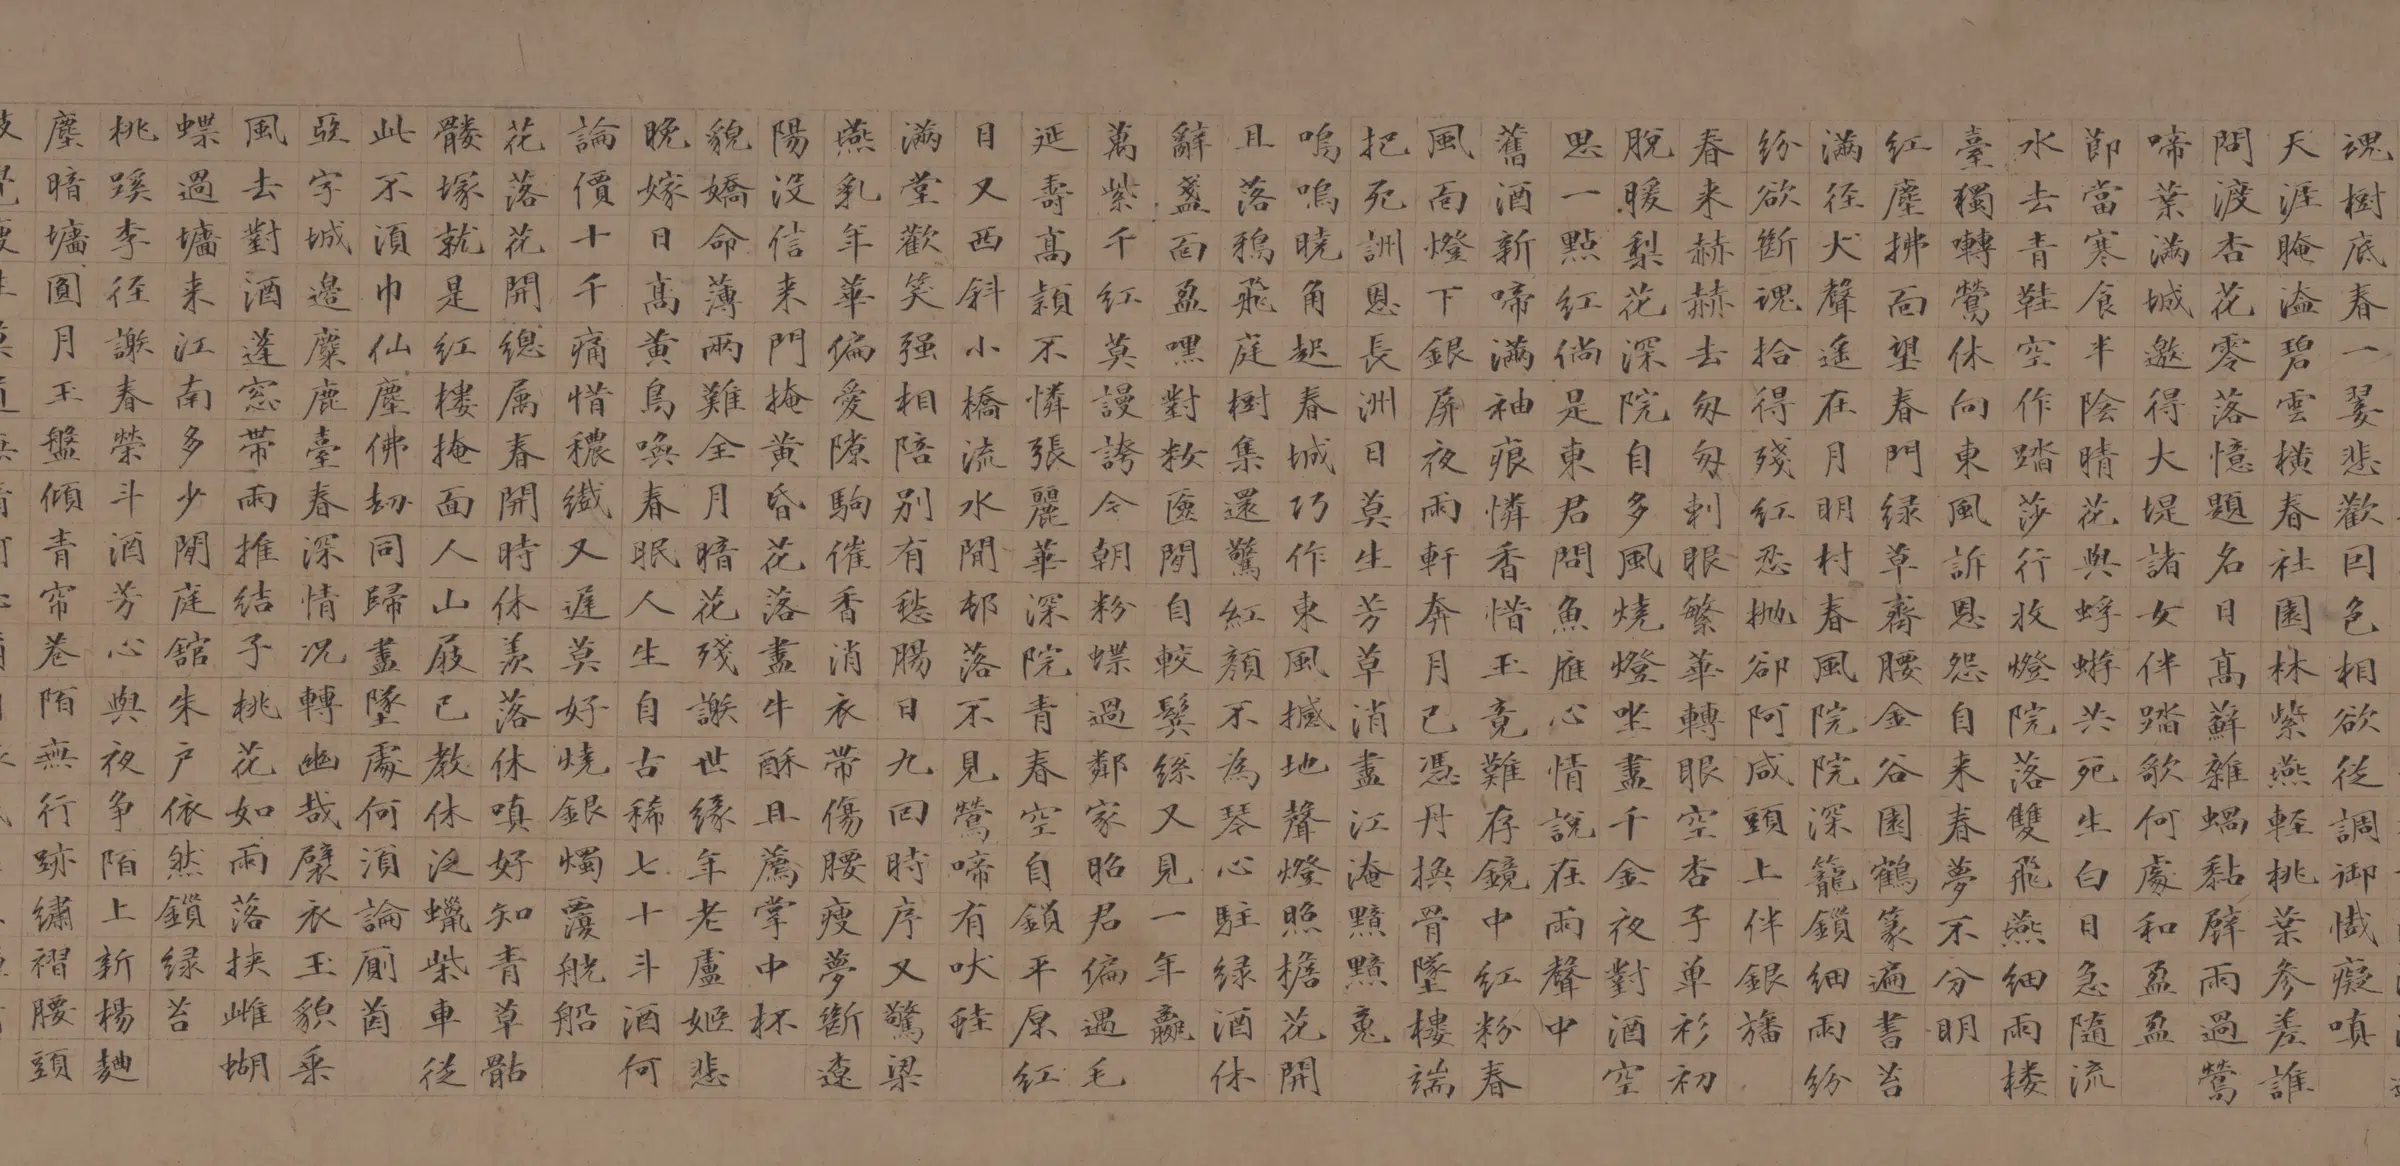 魂樹底春一翣悲歡囘色相欲従調御懴癡嗔
天涯晻溘碧雲橫春社園林紫燕輕桃葉參差誰
問渡杏花零落憶題名日高蘚雜蝸黏壁雨過鶯
啼葉滿城邀得大堤諸女伴踏歌何處和盈盈
節當寒食半陰晴花與蜉蝣共死生白日急隨流
水去青鞋空作踏莎行收燈院落雙飛燕細雨樓
臺獨囀鶯休向東風訴恩怨自来春夢不分明
紅塵拂面望春門緑草齊腰金谷園鶴篆遍書苔
滿径犬聲遥在月明村春風院院深籠鎖細雨紛
紛欲斷魂拾得殘紅忍抛卻阿咸頭上伴銀旛
春来赫赫去匆匆刺眼繁華轉眼空杏子單衫初
脫暖梨花深院自多風燒燈坐盡千金夜對酒空
思一點紅倘是東君問魚雁心情說在雨聲中
舊酒新啼滿袖痕憐香惜玉竟難存鏡中紅粉春
風面燈下銀屏夜雨軒奔月已憑丹換骨墜樓端
把死詶恩長洲日莫生芳草消盡江淹黯黯䰟
嗚嗚曉角起春城巧作東風撼地聲燈照檐花開
且落鴉飛庭樹集還驚紅顏不為琴心駐緑酒休
辭盞面盈嘿對粧匳閒自較鬢絲又見一年贏
萬紫千紅莫謾誇今朝粉蝶過鄰家昭君偏遇毛
延壽高熲不憐張麗華深院青春空自鎖平原紅
日又西斜小橋流水閒邨落不見鶯啼有吠蛙
滿堂歡笑强相陪別有愁腸日九回時序又驚梁
燕乳年華偏愛隙駒催香消衣帶傷腰瘦夢斷遼
陽没信来門掩黃昏花落盡牛酥且薦掌中杯
貌嬌命薄兩難全月暗花殘謝世緣年老盧姬悲
晚嫁日高黃鳥喚春眠人生自古稀七十斗酒何
論價十千痛惜穠纖又遅莫好燒銀燭覆觥船
花落花開總属春開時休羨落休嗔好知青草骷
髏塚就是紅樓掩面人山屐已教休泛蠟柴車從
此不須巾仙塵佛劫同歸盡墜處何須論廁茵
亞字城邊麋鹿臺春深情况轉幽哉襞衣玉貌乘
風去對酒蓬窓帯雨推結子桃花如雨落挾雌蝴
蝶過墻来江南多少閒庭館朱户依然鎖緑苔
桃蹊李径謝春榮斗酒芳心與夜争陌上新楊麯
塵暗墻圓月玉盤傾青帘巷陌無行跡繡褶腰頭